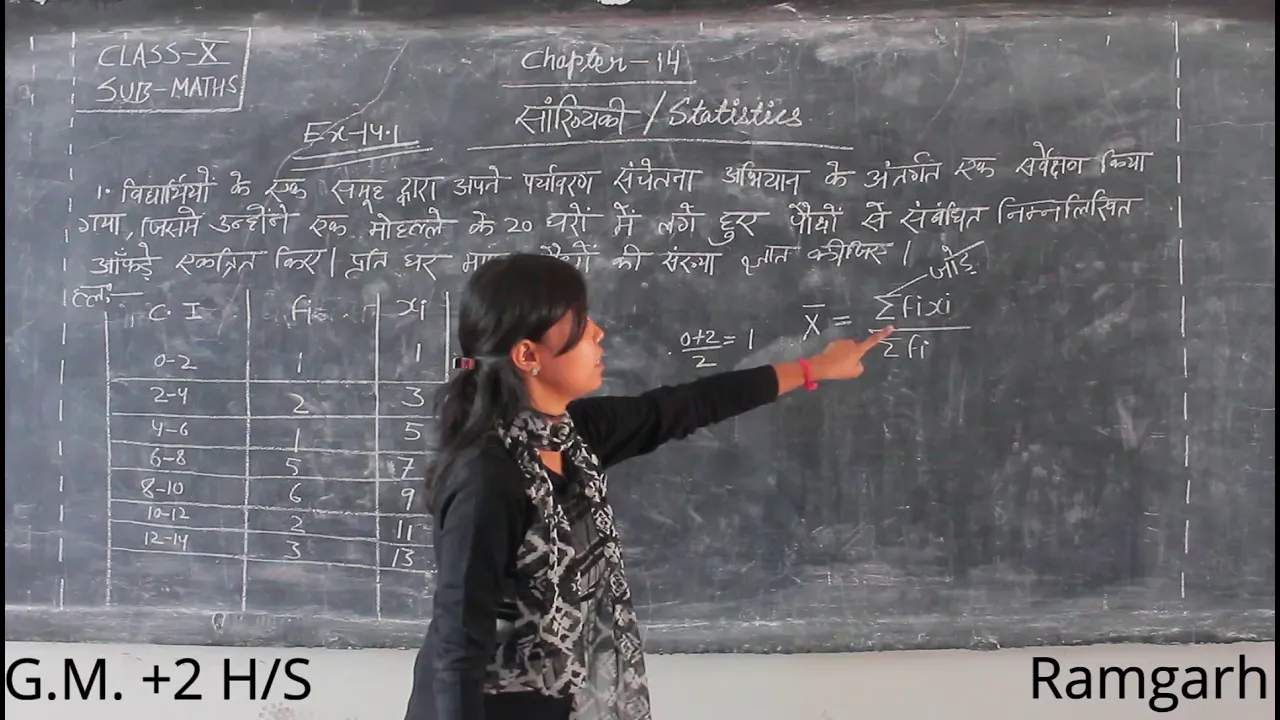 CLASS-X
SUB-MATHS
Chapter-14
सांख्यिकी / Statistics
Ex-14.1
1. विद्यार्थियों के एक समूह द्वारा अपने पर्यावरण संचेतना अभियान के अंतर्गत एक सर्वेक्षण किया
गया, जिसमें उन्होंने एक मोहल्ले के 20 घरों में लगे हुए पौधों से संबंधित निम्नलिखित
आँकड़े एकत्रित किए। प्रति घर की संख्या ज्ञात कीजिए।
हल:-
C.I fi xi
0-2 1 1
2-4 2 3
4-6 1 5
6-8 5 7
8-10 6 9
10-12 2 11
12-14 3 13
0+2/2 = 1
x̄ = Σfixi / Σfi
जोड़
G.M. +2 H/S
Ramgarh